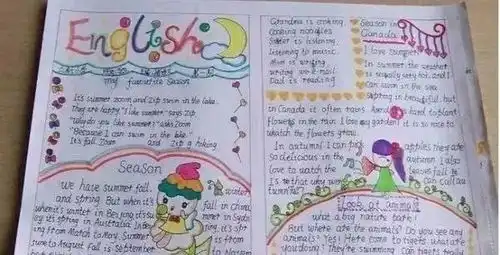 English
my favourite Season
It's summer. Zoom and Zip swim in the lake.
They are happy. "I like summer" says Zip
"Why do you like summer?" asks Zoom
"Because I can swim in the lake."
It's fall. Zoom and Zip g hiking
Season
we have summer fall. winter
and spring. But when it's fall in China,
spring in Australia. In Be
from March to May. Summer is from
June to August. Fall is September
Grandma is cooking.
Cooking noodles
Sister is listening.
listening to music.
Mum is writing
writing an e-mail.
Dad is reading
Season in
Canada
I love summer
In summer the weather
is usually very hot, and I
can swim in the sea
Spring is beautiful, but
in Canada it often rains. hard to plant
flowers in the rain. I love my garden! it is so nice to
watch the flowers grow.
In autumn I can pick apples they are
so delicious in the autumn I also
love to watch the leaves fall
Is that why we can call
Look at animals
what a big nature park
But where are the animals? Do you see any
animals? Yes! Here come to tigers what are
you doing? They're swimming Can tigers really